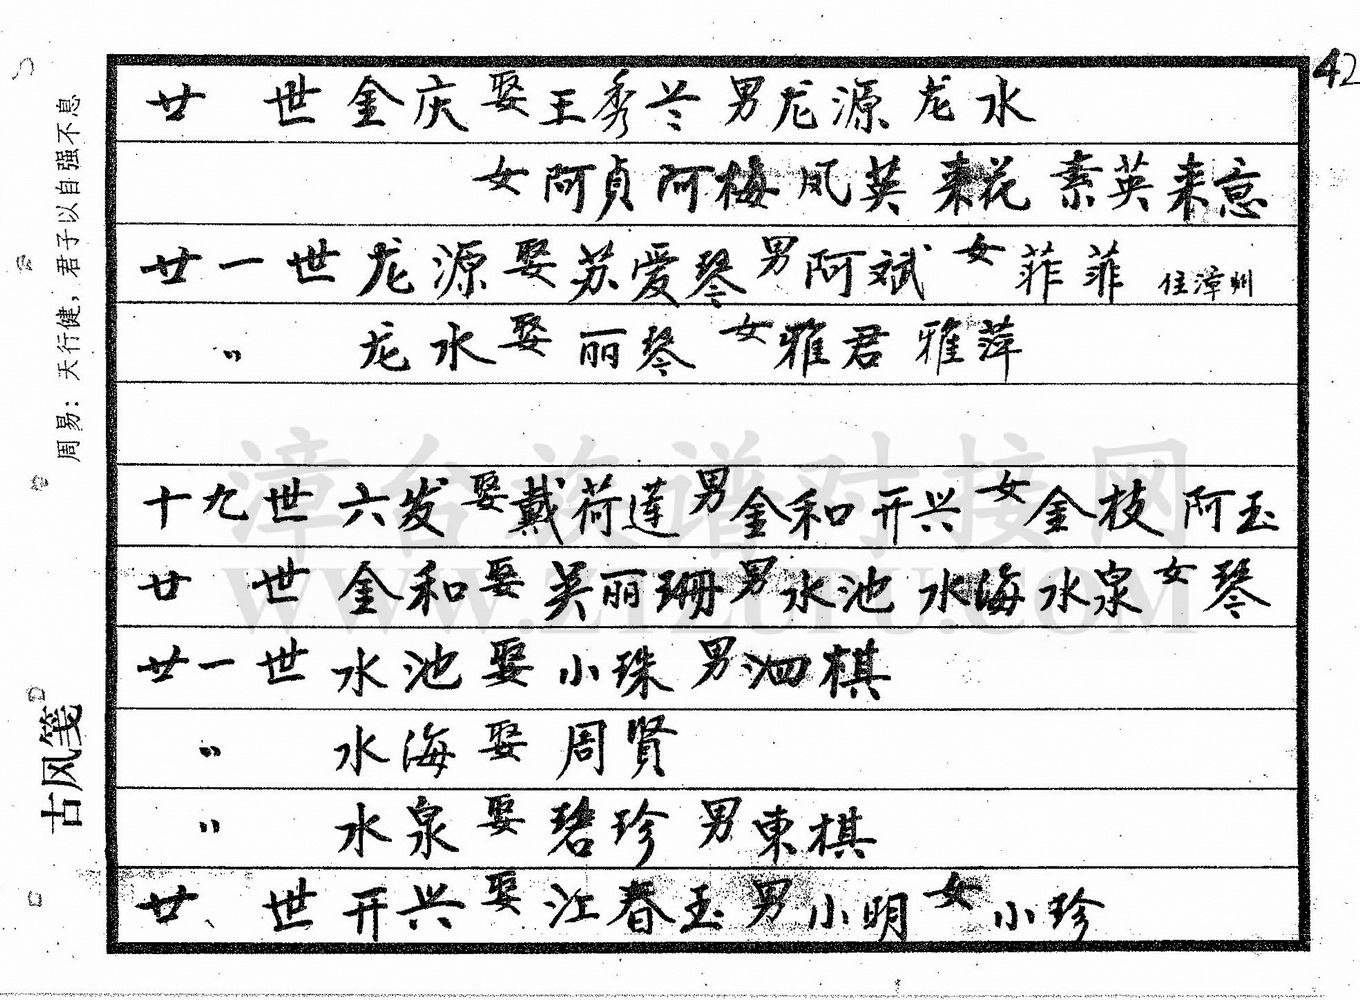 42
廿 世 金庆 娶 王秀兰 男 龙源 龙水
女 阿贞 阿梅 凤英 来花 素英 来意
廿一世 龙源 娶 苏爱琴 男 阿斌 女 菲菲 住漳州
〃 龙水 娶 丽琴 女 雅君 雅萍
十九世 六发 娶 戴荷莲 男 金和 开兴 女 金枝 阿玉
廿 世 金和 娶 吴丽珊 男 水池 水海 水泉 女 琴
廿一世 水池 娶 小珠 男 泗棋
〃 水海 娶 周贤
〃 水泉 娶 碧珍 男 東棋
廿 世 开兴 娶 江春玉 男 小明 女 小珍
周易：天行健，君子以自强不息
古风笺
漳台族谱对接网
WWW.ZTZUPU.COM